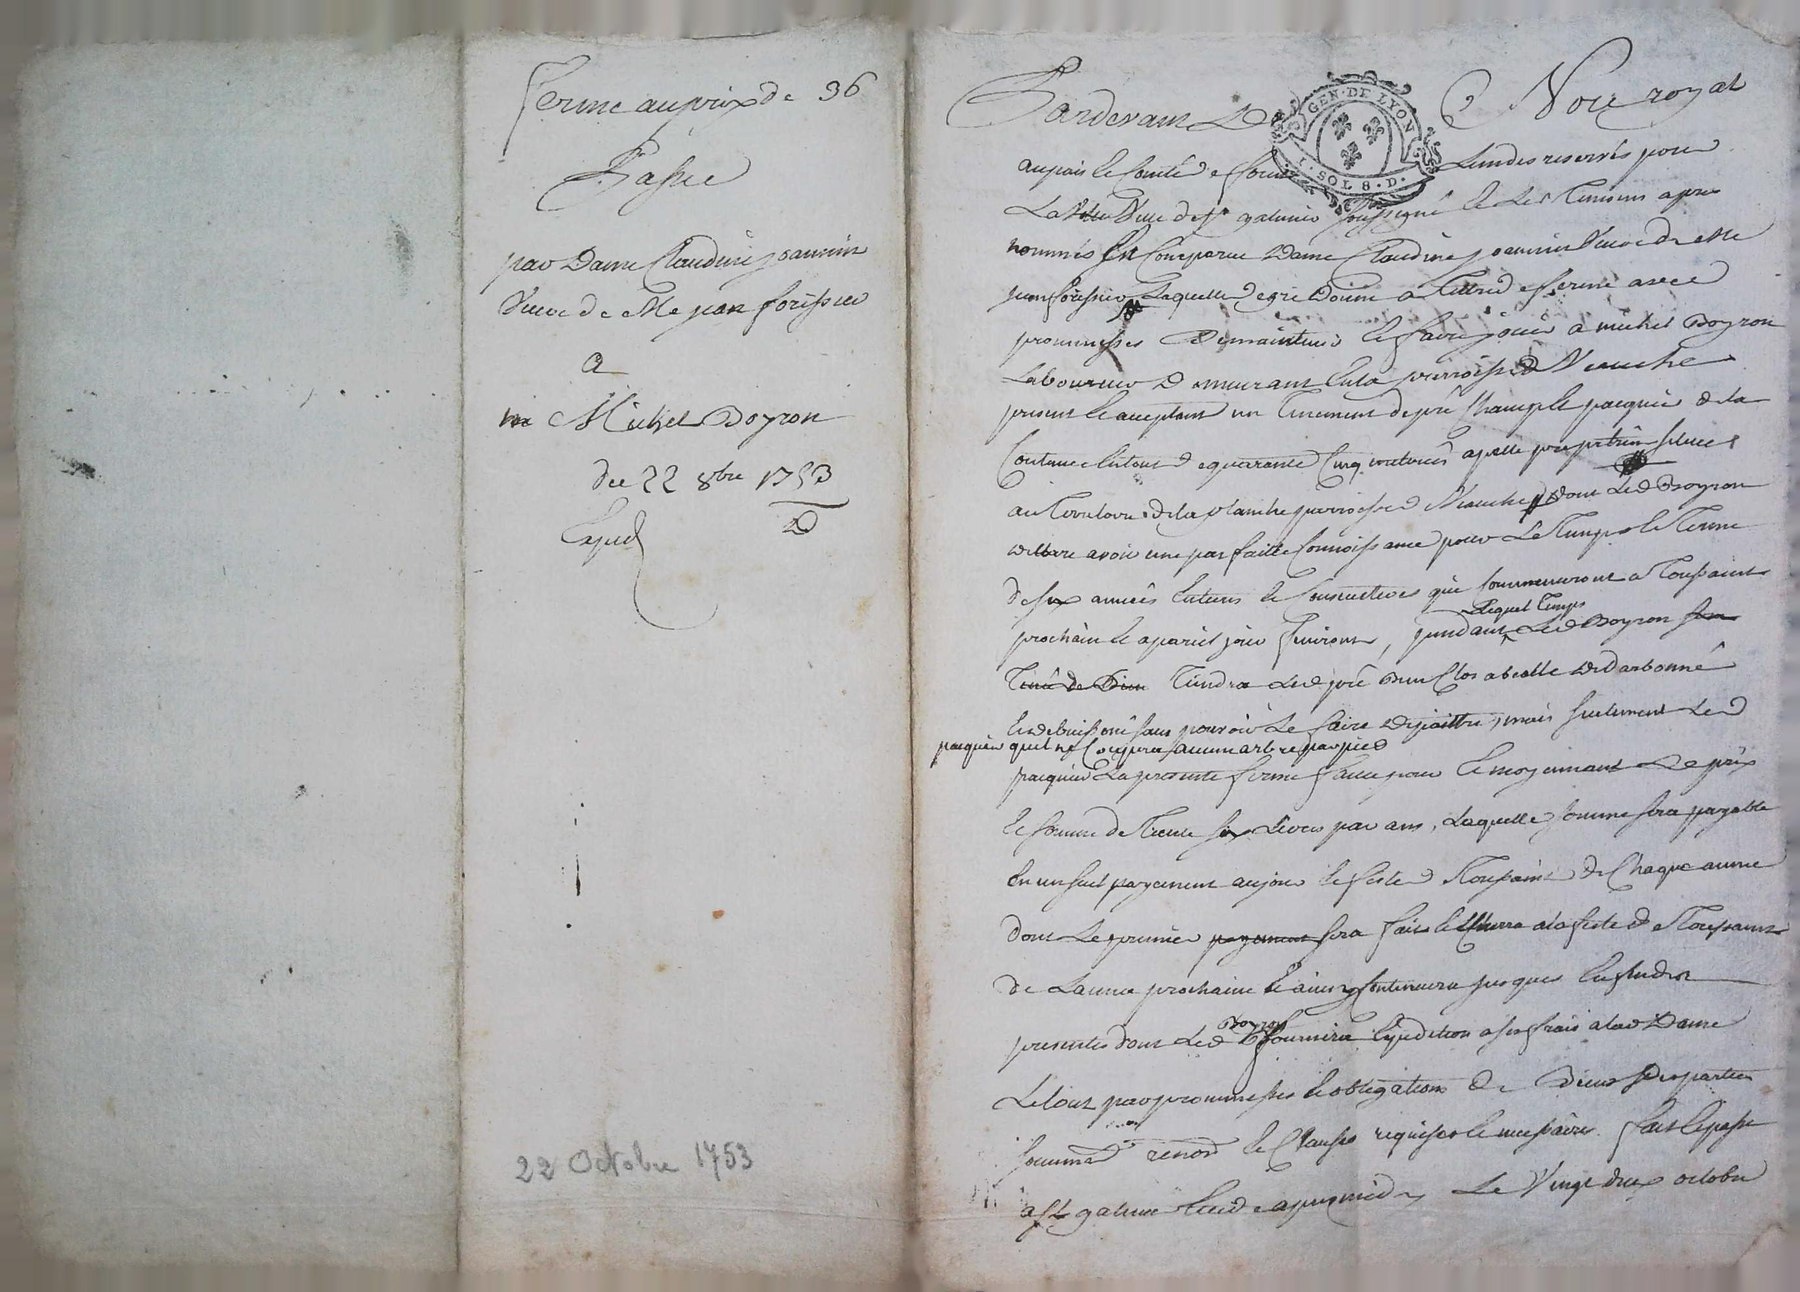 ferme au prix de 36
Passée
par Dame Claudine joannin
Veuve de Me jean forissier
a
Michel Doyron
du 22 8bre 1753
Exped
22 Octobre 1753
Pardevant Le Nore royal
GEN · DE LYON
1 · SOL 8 · D ·
au païs le Comté de forest reservés pour
La Ville de St galmier soussigné et Les Temoins apres
nommés fut Comparue Dame Claudine joannin Veuve de Me
jean forissier Laquelle de gré Donne a Titre de ferme avec
promesses de maintenir et faire jouir a michel Doyron
Laboureur demeurant en la parroisse de Veauche
present et acceptant un Tenement de pré Champ et paquier de la
Contenue en tout de quarante Cinq appellé situé
au Territoire de la planche parroisse de Veauche dont Led Doyron
declare avoir une parfaitte Connoissance pour Le Temps et Terme
de six années Entieres et Consecutives qui Commenceront a Toussaint
prochain et a pareil jour finiront, pendant Lequel Temps Led Doyron
Tiendra Led pré Clos
sans pouvoir Le faire mais seulement Led
paquier quil ne Coupera aucun arbre par pied
paquier La presente ferme faitte pour et moyennant Le prix
et somme de Trente six Livres par ans, Laquelle somme sera payable
en un seul payement au jour et feste de Toussaint de Chaque année
dont Le premier payement sera fait et Echerra a la feste de Toussaint
de Lannée prochaine et ainsy Continuera jusques En fin des
presentes dont Led Doyron fournira Expedition a ses frais a lad Dame
Le tout par promesses et obligations de Biens des parties
soumise renon et Clauses requises et necessaires fait et passé
a St galmier Etude apres midy Le Vingt deux octobre